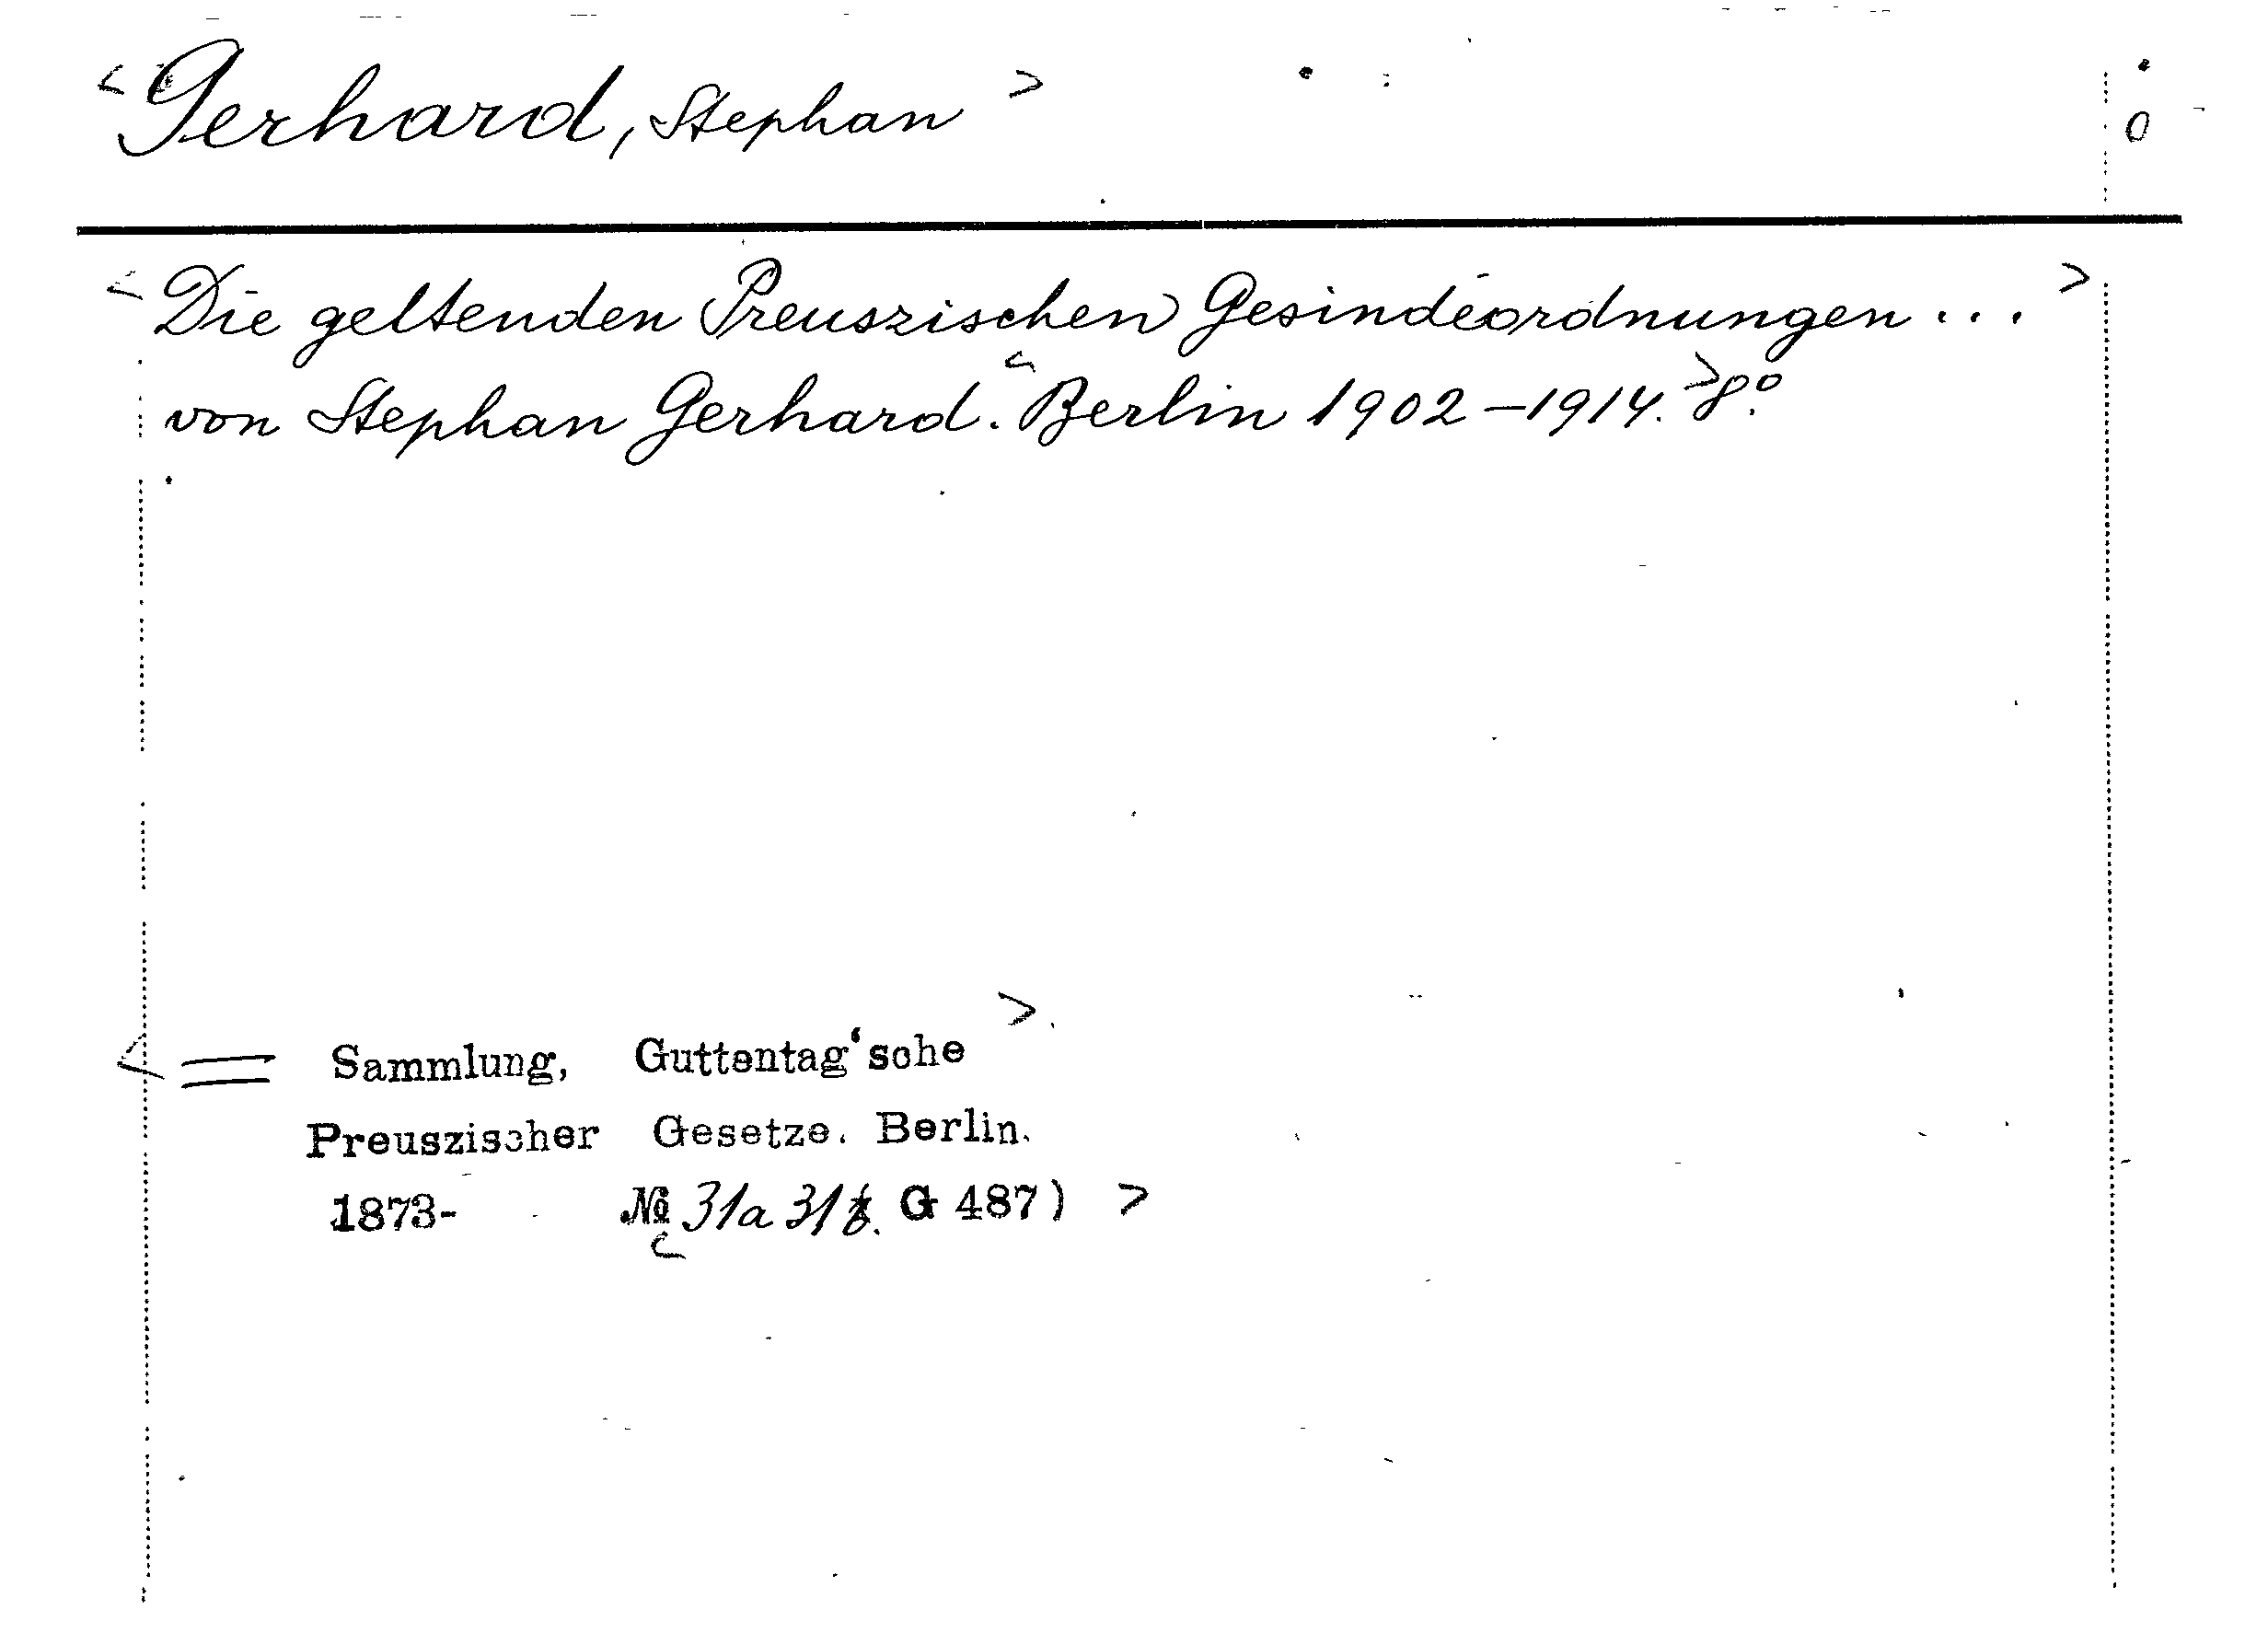 < Gerhard, Stephan >
0
< Die geltenden Preuszischen Gesindeordnungen... >
von Stephan Gerhard. < Berlin 1902-1914. > 8º.
< = Sammlung, Guttentag'sche >
Preuszischer Gesetze. Berlin.
1873- № 31a 31b. G 487) >